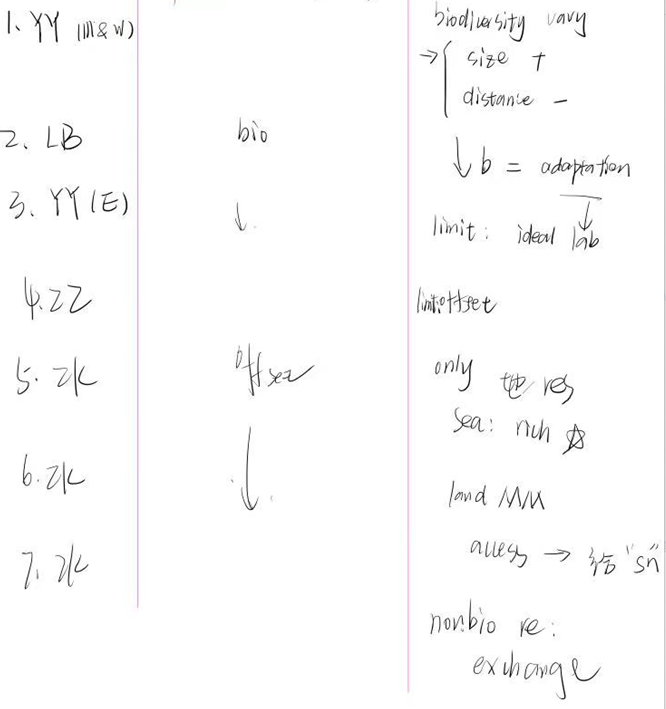 1. YY (M&W)
biodiversity vary
→ { size +
distance −
2. LB
bio
↓ b = adaptation
3. YY (E)
↓
limit: ideal lab
4. ZZ
limit: offset
5. ZK
offset
only 地 res
sea: rich ☆
6. ZK
↓
land MM
access → 结 "sn"
7. ZK
nonbio re:
exchange